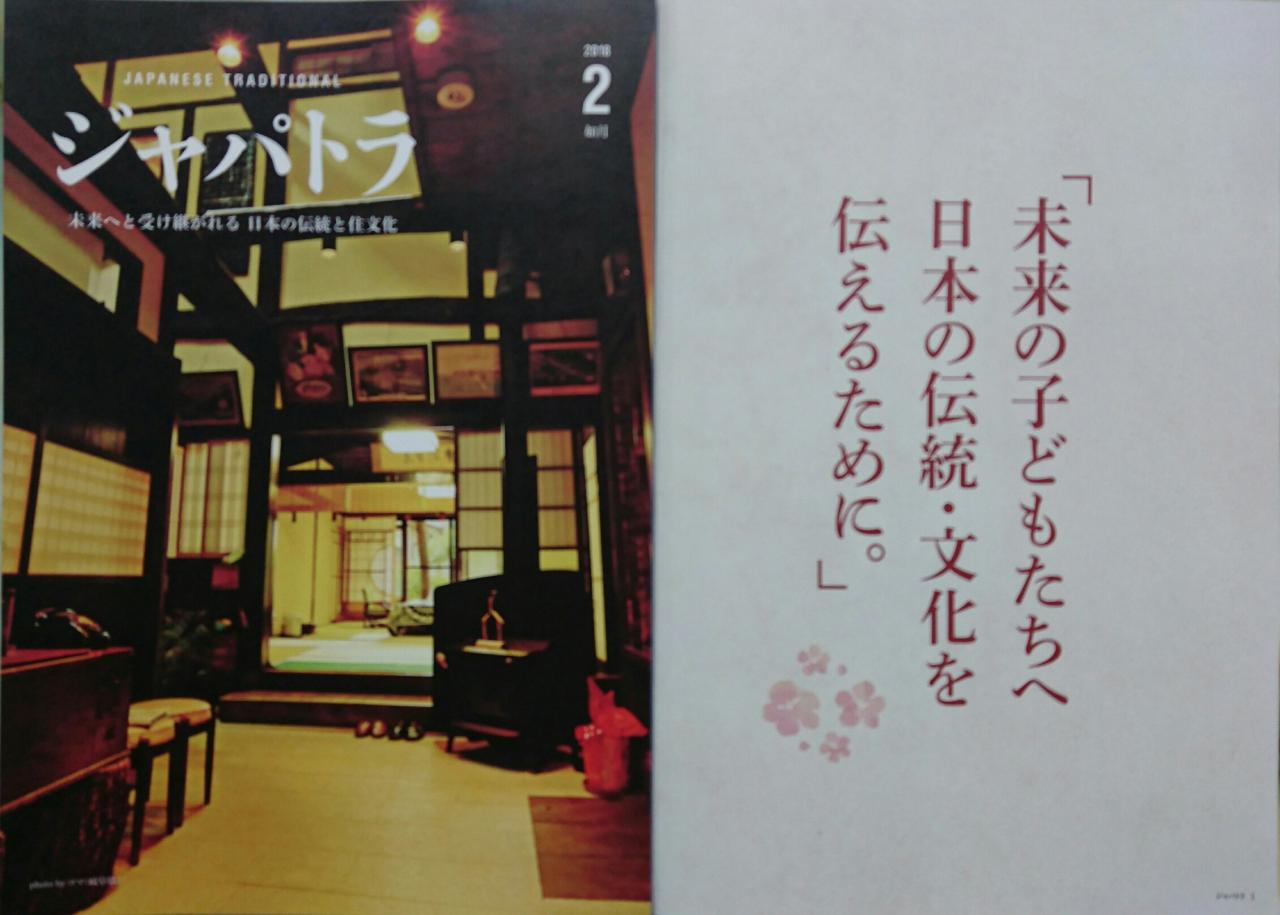 JAPANESE TRADITIONAL
ジャパトラ
未来へと受け継がれる 日本の伝統と住文化
2018
2
如月
「未来の子どもたちへ
日本の伝統・文化を
伝えるために。」
ジャパトラ 1